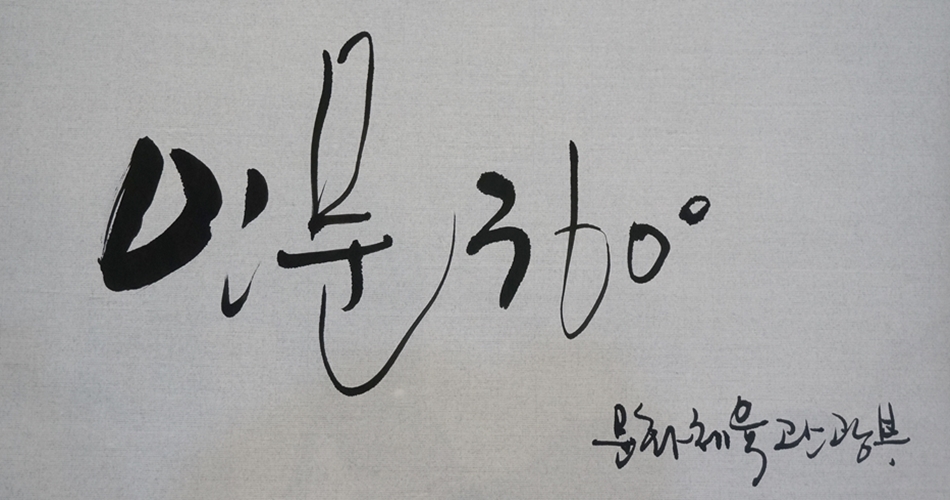 인문360°
문화체육관광부